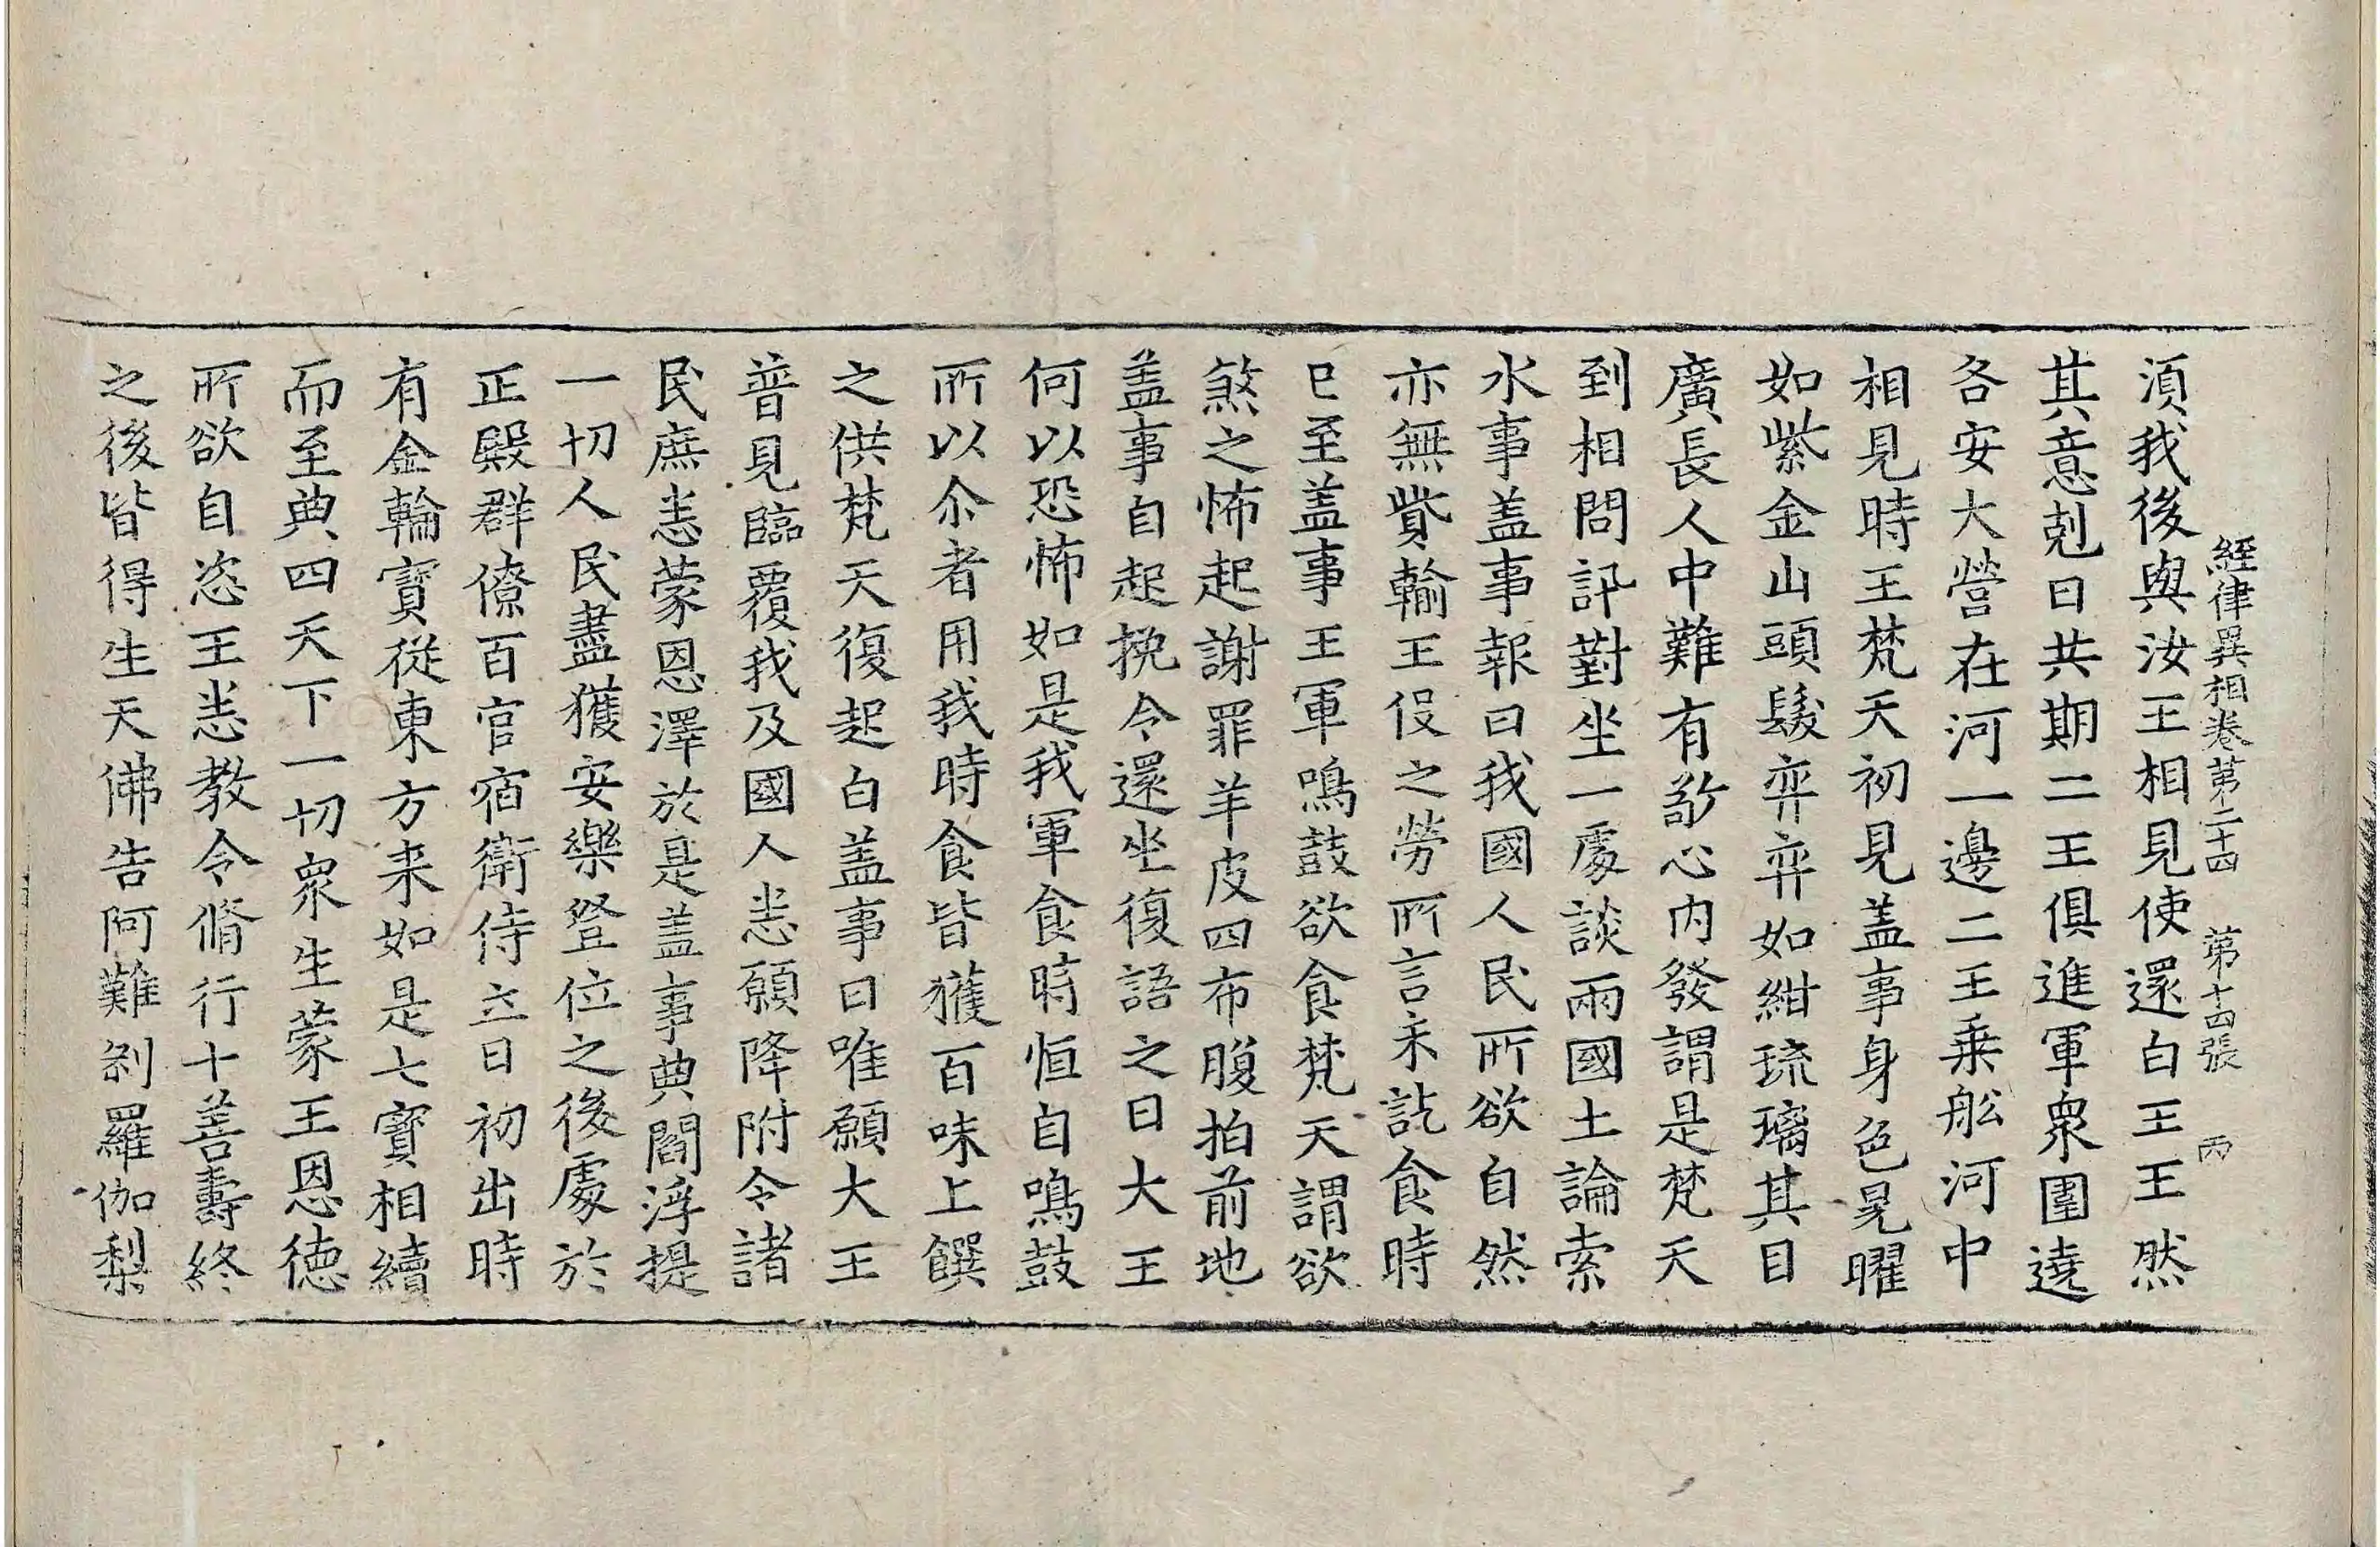 經律異相卷第二十四 第十四張 丙
湏我後與汝王相見使還白王王然
其意剋日共期二王俱進軍衆圍遶
各安大營在河一邊二王乗舩河中
相見時王梵天初見盖事身色晃曜
如紫金山頭髮弈弈如紺琉璃其目
廣長人中難有敬心内發謂是梵天
到相問訊對坐一處談兩國土論索
水事盖事報曰我國人民所欲自然
亦無貲輸王役之勞所言未訖食時
已至盖事王軍鳴鼓欲食梵天謂欲
煞之怖起謝罪羊皮四布腹拍前地
盖事自起挽令還坐復語之曰大王
何以恐怖如是我軍食時恒自鳴鼓
所以尒者用我時食皆獲百味上饌
之供梵天復起白盖事曰唯願大王
普見臨覆我及國人悉願降附令諸
民庶悉蒙恩澤於是盖事典閻浮提
一切人民盡獲安樂登位之後處於
正殿群僚百官宿衛侍立日初出時
有金輪寶從東方来如是七寶相續
而至典四天下一切衆生蒙王恩徳
所欲自恣王悉教令脩行十善壽終
之後皆得生天佛告阿難刹羅伽梨